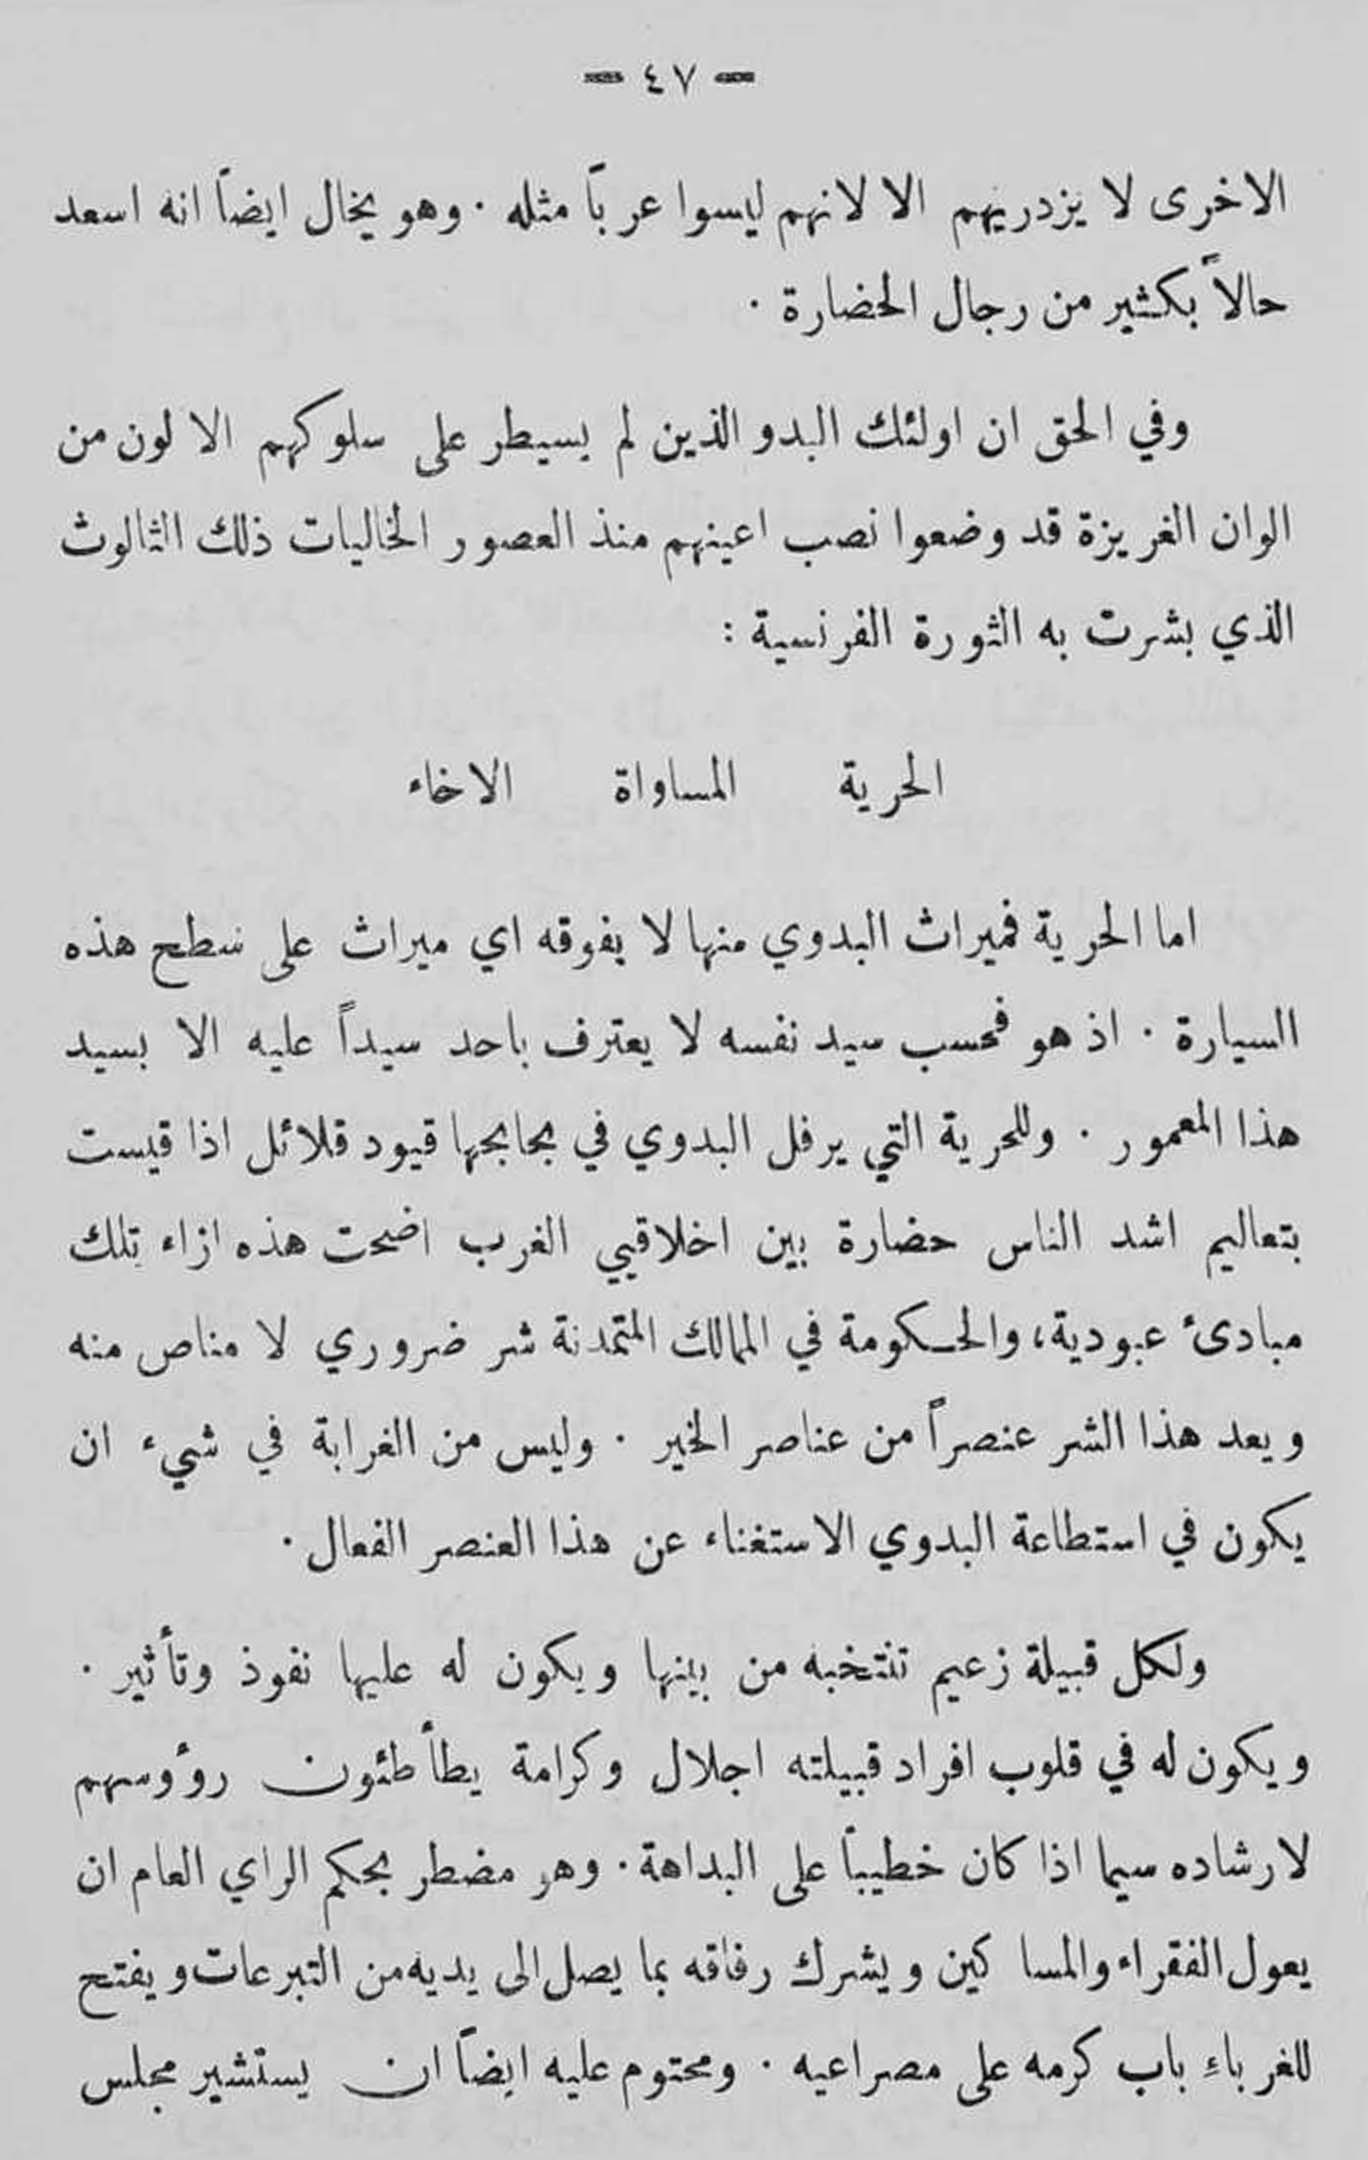 — ٤٧ —
الاخرى لا يزدريهم الا لانهم ليسوا عرباً مثله . وهو يخال ايضاً انه اسعد
حالاً بكثير من رجال الحضارة .
وفي الحق ان اولئك البدو الذين لم يسيطر على سلوكهم الا لون من
الوان الغريزة قد وضعوا نصب اعينهم منذ العصور الخاليات ذلك الثالوث
الذي بشرت به الثورة الفرنسية :
الحرية المساواة الاخاء
اما الحرية فميراث البدوي منها لا يفوقه اي ميراث على سطح هذه
السيارة . اذ هو فحسب سيد نفسه لا يعترف باحد سيداً عليه الا بسيد
هذا المعمور . وللحرية التي يرفل البدوي في بحابحها قيود قلائل اذا قيست
بتعاليم اشد الناس حضارة بين اخلاقيي الغرب اضحت هذه ازاء تلك
مبادئ عبودية، والحكومة في الممالك المتمدنة شر ضروري لا مناص منه
ويعد هذا الشر عنصراً من عناصر الخير . وليس من الغرابة في شيء ان
يكون في استطاعة البدوي الاستغناء عن هذا العنصر الفعال .
ولكل قبيلة زعيم تنتخبه من بينها ويكون له عليها نفوذ وتأثير .
ويكون له في قلوب افراد قبيلته اجلال وكرامة يطأطئون رؤوسهم
لارشاده سيما اذا كان خطيباً على البداهة . وهو مضطر بحكم الراي العام ان
يعول الفقراء والمساكين ويشرك رفاقه بما يصل الى يديه من التبرعات ويفتح
للغرباءِ باب كرمه على مصراعيه . ومحتوم عليه ايضاً ان يستشير مجلس